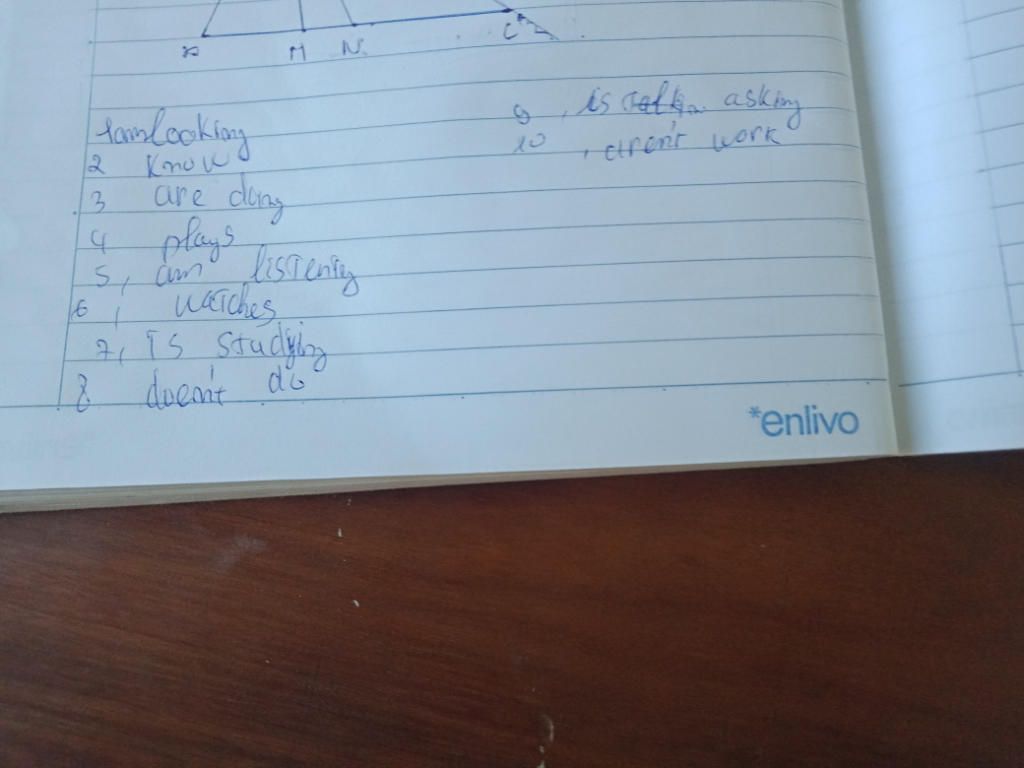 M N C
1 am looking
2 know
3 are doing
4 plays
5, am listening
6, watches
7, is studying
8 doen't do
9, is talkin asking
10, aren't work
*enlivo